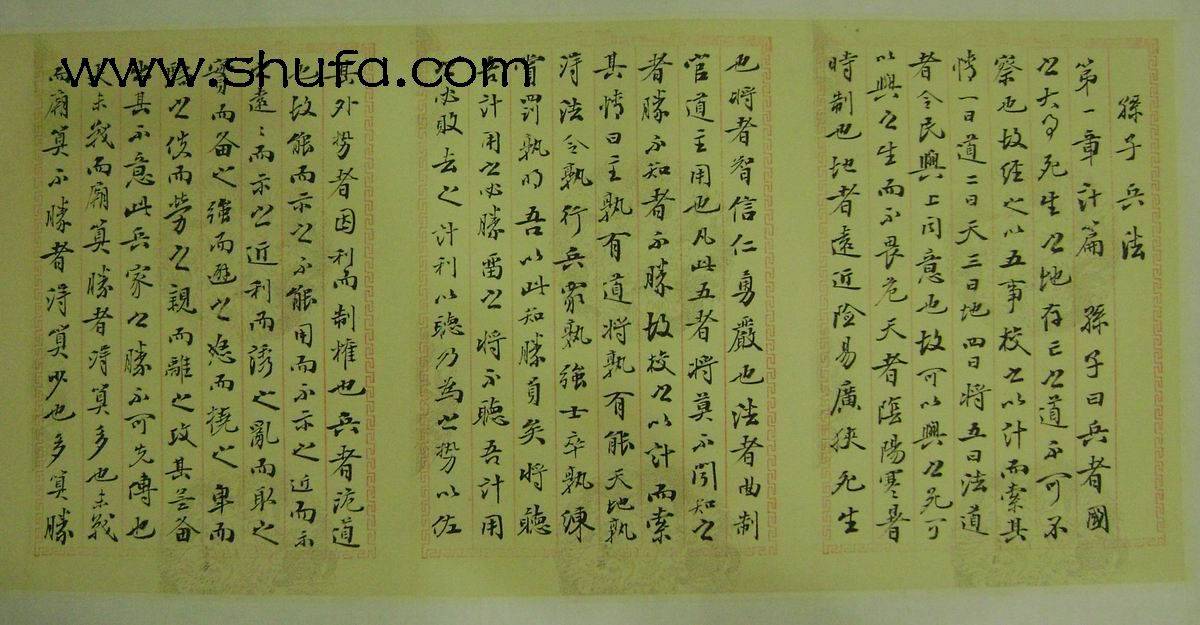 孫子兵法
第一章計篇 孫子曰兵者國
之大事死生之地存亡之道不可不
察也故经之以五事校之以计而索其
情一曰道二曰天三曰地四曰将五曰法道
者令民與上同意也故可以與之死可
以與之生而不畏危天者陰陽寒暑
時制也地者遠近险易廣狭死生
也将者智信仁勇嚴也法者曲制
官道主用也凡此五者将莫不聞知之
者勝不知者不勝故校之以计而索
其情曰主孰有道将孰有能天地孰
得法令孰行兵眾孰强士卒孰練
賞罰孰明吾以此知勝負矣将聽
吾计用之必勝留之将不聽吾计用
之必敗去之计利以聽乃為之势以佐
其外势者因利而制權也兵者诡道
也故能而示之不能用而不示之近而示
之遠遠而示之近利而誘之亂而取之
實而备之强而避之怒而撓之卑而
驕之佚而勞之親而離之攻其无备
出其不意此兵家之勝不可先傳也
夫未戰而廟算勝者得算多也未戰
而廟算不勝者得算少也多算勝
www.shufa.com